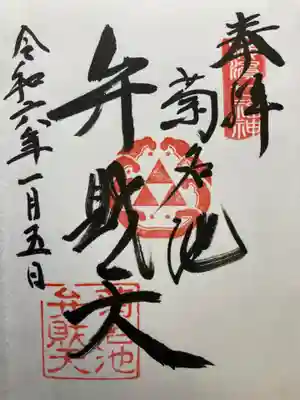 奉拝
菊名池
弁財天
令和六年一月五日
菊名池
弁財天